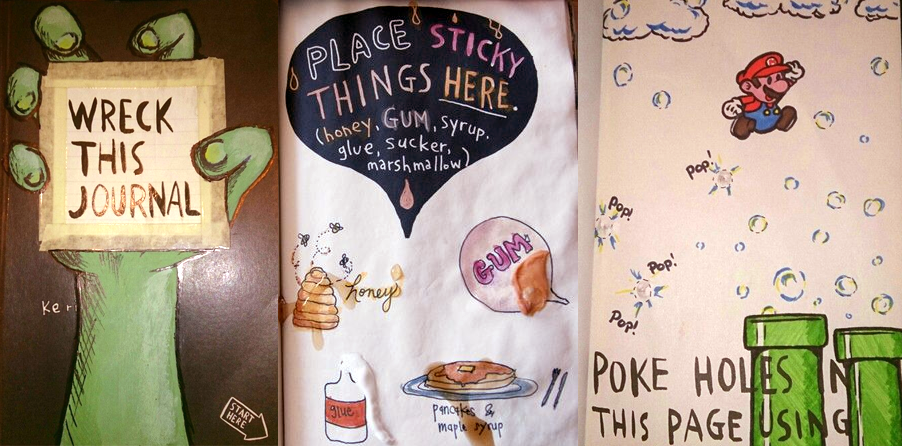 WRECK
THIS
JOURNAL
Ker
START
HERE
PLACE STICKY
THINGS HERE.
(honey, GUM, syrup,
glue, sucker,
marshmallow)
honey
GUM
glue
pancakes &
maple syrup
POP!
POP!
POP!
POP!
POKE HOLES IN
THIS PAGE USING